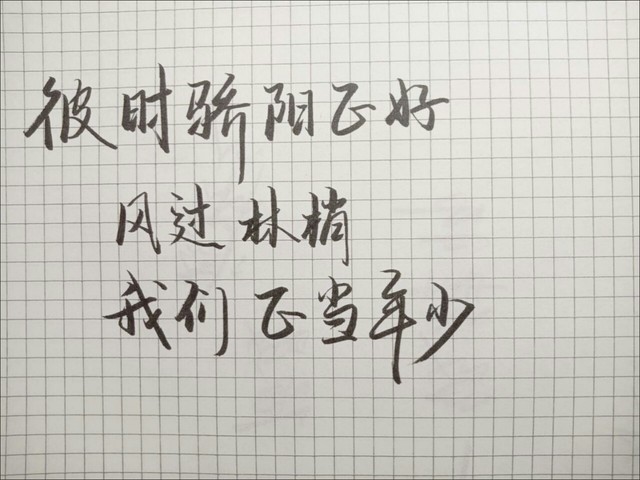 彼时骄阳正好
风过林梢
我们正当年少